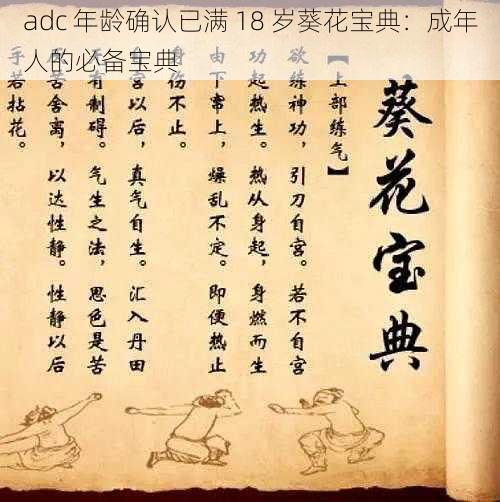 adc 年龄确认已满 18 岁葵花宝典：成年
人的必备宝典
葵花宝典
【上部练气】
欲练神功，引刀自宫。若不自宫
功起热生。热从身起，身燃而生
由下窜上，燥乱不定。即便热止
身伤不止。
自宫以后，真气自生。汇入丹田
有制碍。气生之法，思色是苦
苦舍离，以达性静。性静以后
手若拈花。